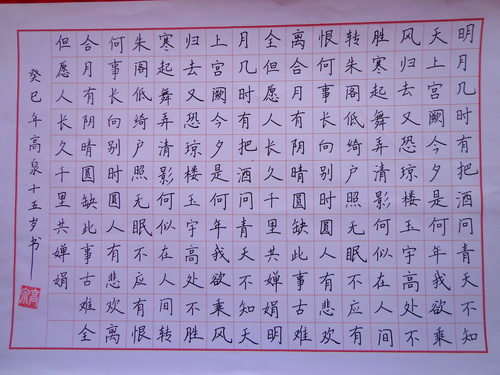 明月几时有把酒问青天不知
天上宫阙今夕是何年我欲乘
风归去又恐琼楼玉宇高处不
胜寒起舞弄清影何似在人间
转朱阁低绮户照无眠不应有
恨何事长向别时圆人有悲欢
离合月有阴晴圆缺此事古难
全但愿人长久千里共婵娟明
月几时有把酒问青天不知天
上宫阙今夕是何年我欲乘风
归去又恐琼楼玉宇高处不胜
寒起舞弄清影何似在人间转
朱阁低绮户照无眠不应有恨
何事长向别时圆人有悲欢离
合月有阴晴圆缺此事古难全
但愿人长久千里共婵娟
癸巳年高泉十五岁书